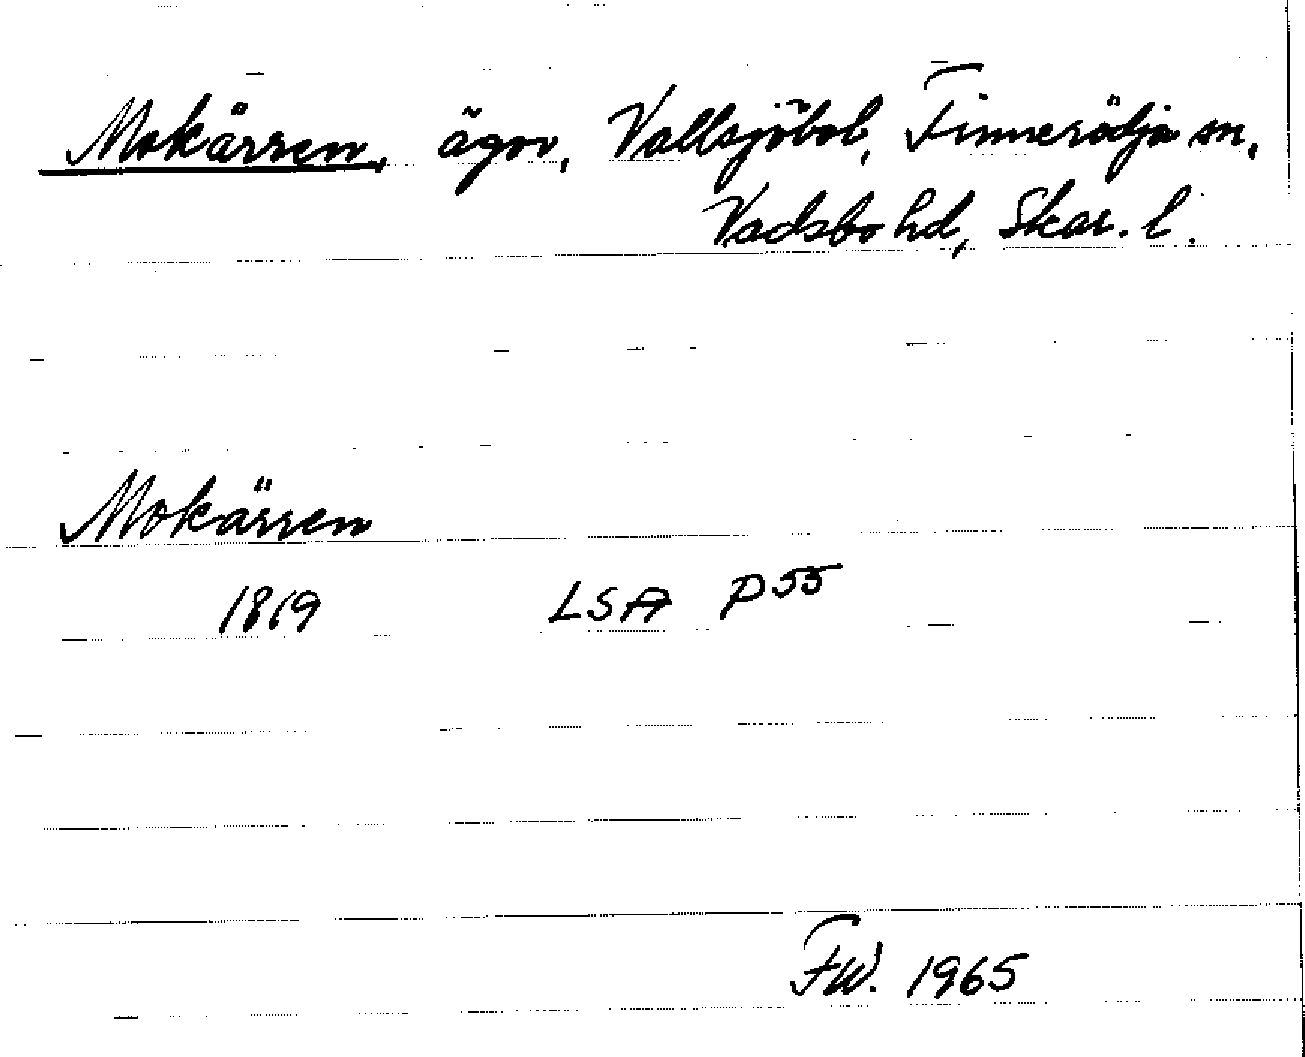 Mokärren, ägor, Vallsjöbol, Finnerödja sn,
Vadsbo hd, Skar. l.
Mokärren
1819 LSA P55
FW. 1965